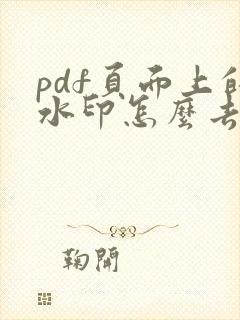 pdf頁面上的
水印怎麼去
鞠開